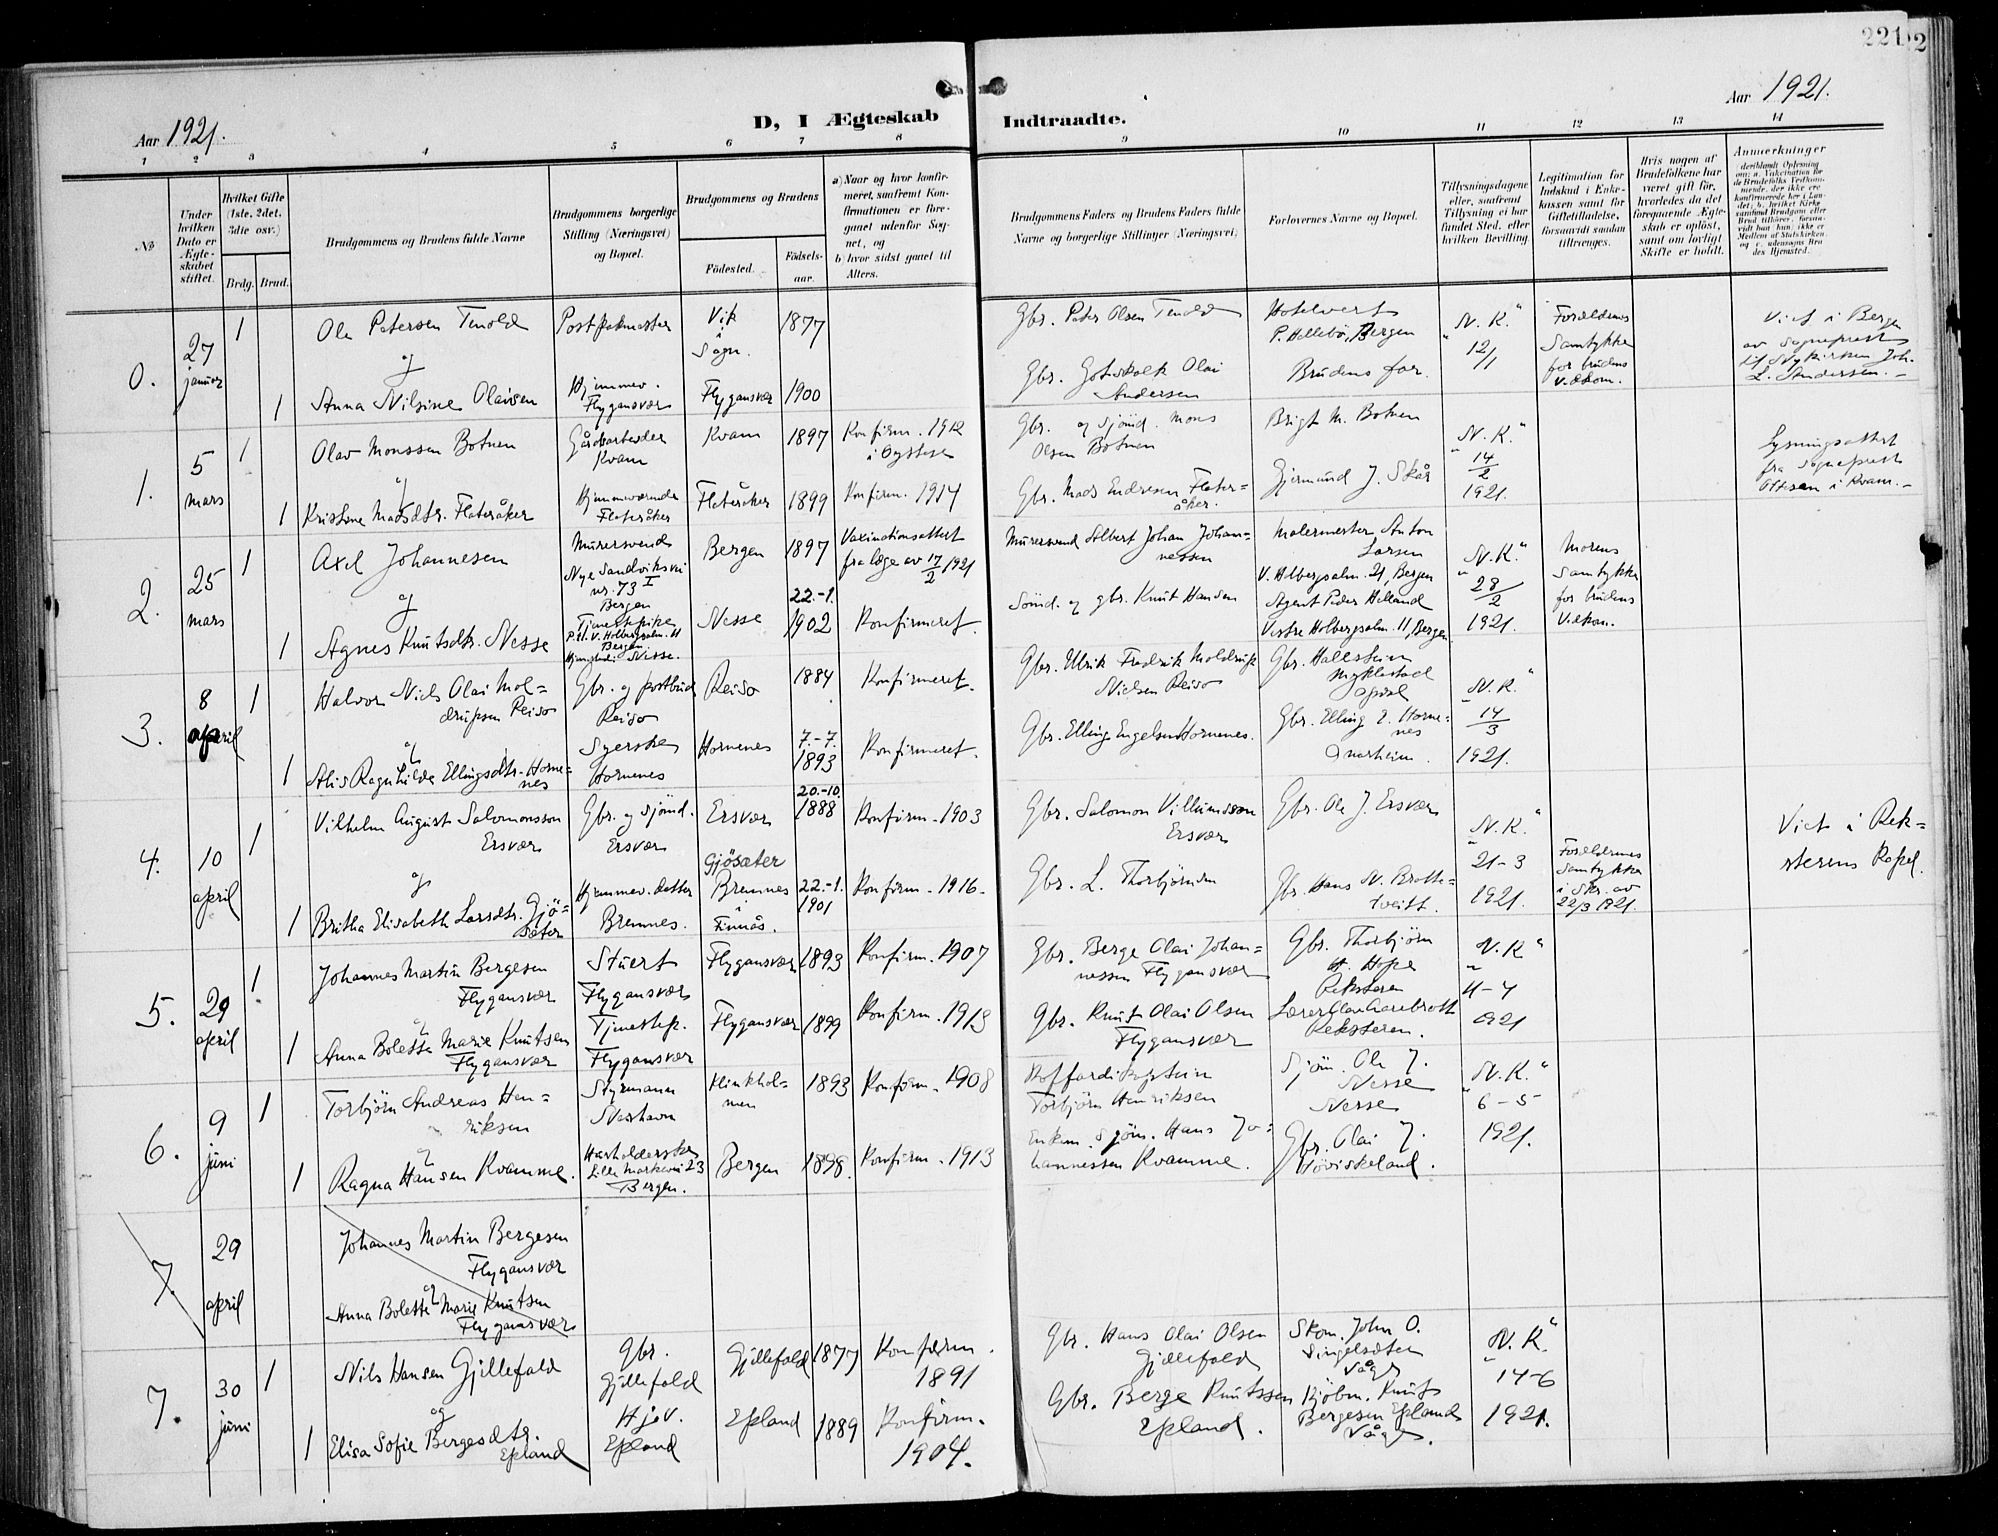 221
2
Aar 1921.
D, I Ægteskab Indtraadte.
Aar 1921.
1 2 3 4 5 6 7 8 9 10 11 12 13 14
No
Under hvilken Dato er Ægteskabet stiftet.
Hvilket Gifte (1ste, 2det, 3die osv.)
Brdg. Brud.
Brudgommens og Brudens fulde Navne
Brudgommens borgerlige Stilling (Næringsvei) og Bopæl.
Brudgommens og Brudens
Födested.
Födselsaar.
a) Naar og hvor konfirmeret, saafremt Konfirmationen er foregaaet udenfor Sognet, og
b) hvor sidst gaaet til Alters.
Brudgommens Faders og Brudens Faders fulde Navne og borgerlige Stillinger (Næringsvei)
Forlovernes Navne og Bopæl.
Tillysningsdagene eller, saafremt Tillysning ei har fundet Sted, efter hvilken Bevilling.
Legitimation for Indskud i Enkekassen samt for Giftetilladelse, forsaavidt saadan tiltrænges.
Hvis nogen af Brudefolkene har været gift för, hvorledes da det foregaaende Ægteskab er oplöst, samt om lovligt Skifte er holdt.
Anmærkninger
0.
27 januar
1
Ole Petersen Tenold
Postpakmester
Vik i Sogn.
1877
Gbr. Peter Olsen Tenold
Hotelvert P. Hellebö, Bergen
"N. K."
12/1
Forældrenes Samtykke for brudens vedkom.
Viet i Bergen av Sogneprest til Nykirken Joh. L. Andersen. -
og
1
Anna Nilsine Olaisen
Hjemmev. Flygansvær
Flygansvær
1900
Gbr. Gotskalk Olai Andersen
Brudens far.
1.
5 mars
1
Olav Monssen Botnen
Gårdsarbeider Kvam
Kvam
1897
Konfirm. 1912 i Øystese
Gbr. og Sjömd. Mons Olsen Botnen
Brigt M. Botnen
"N. K."
14/2 1921.
Lysningsattest fra Sogneprest Ottsen i Kvam. -
og
1
Kristine Madsdtr. Flateråker
Hjemmeværende Flateråker
Flateråker
1899
Konfirm. 1914
Gbr. Mads Endresen Flateråker.
Gjermund J. Skår
2.
25 mars
1
Axel Johannesen
Murersvend Nye Sandviksvei nr. 73 I Bergen
Bergen
1897
Vaxinationsattest fra læge av 17/2 1921
Murersvend Albert Johan Johannessen
Malermester Anton Larsen V. Holbergsalm. 21, Bergen
"N. K."
28/2 1921.
Morens Samtykke for brudens Vedkom.
og
1
Agnes Knutsdtr. Nesse
Tjenestepike P.t. V. Holbergsalm. 11 Bergen Hjemsted: Nesse.
Nesse
22.-1. 1902
Konfirmeret.
Sömd. og gbr. Knut Hansen
Agent Peder Helland Vestre Holbergsalm. 11, Bergen
3.
8 april
1
Halvor Niels Olai Moldrupsen Reisø
Gbr. og postbud Reisø
Reisø
1884
Konfirmeret.
Gbr. Ulrik Fredrik Moldrup Nielsen Reisø
Gbr. Hallstein Myklestad
"N. K."
14/3 1921.
og
1
Alis Ragnhilda Ellingsdtr. Hornenes
Syerske Hornenes
Hornenes
7.-7. 1893
Konfirmeret.
Gbr. Elling Engelsen Hornenes.
Gbr. Elling E. Hornenes
4.
10 april
1
Vilhelm August Salomonsson Ersvær
Gbr. og Sjömd. Ersvær
Ersvær
20.-10. 1888
Konfirm. 1903
Gbr. Salomon Villumsson Ersvær
Gbr. Ole J. Ersvær
"N. K."
21-3 1921.
Forældrenes Samtykke i Skr. av 22/3 1921.
Viet i Reksterens Kapel.
og
1
Britha Elisabeth Larsdtr. Gjösæter
Hjemmev. datter Bremnes.
Gjösæter Bremnes i Finnås.
22.-1. 1901
Konfirm. 1916.
Gbr. L. Thorbjörnsen
Gbr. Hans N. Brattetveitt.
5.
29 april
1
Johannes Martin Bergesen Flygansvær
Stuert Flygansvær
Flygansvær
1893
Konfirm. 1907
Gbr. Berge Olai Johannessen Flygansvær
Gbr. Thorbjörn H. Hope Reksteren
"N. K."
11-4 1921
og
1
Anna Bolette Marie Knutsen Flygansvær
Tjenestep. Flygansvær
Flygansvær
1899
Konfirm. 1913
Gbr. Knut Olai Olsen Flygansvær
Lærer Olav Reksteren.
6.
9 juni
1
Torbjörn Andreas Henriksen
Styrmann Neshavn
Klinkholmen
1893
Konfirm. 1908
Koffardikaptein Torbjörn Henriksen
Sjöm. Ole J. Nesse Nesse
"N. K."
6-5 1921.
og
1
Ragna Hansen Kvamme.
Husholderske Lille Markevei 23 Bergen.
Bergen
1898.
Konfirm. 1913
Enkem. Sjöm. Hans Johannessen Kvamme.
Gbr. Olai J. Höviskeland.
7.
29 april
Johannes Martin Bergesen Flygansvær
og
Anna Bolette Marie Knutsen Flygansvær
7.
30 juni
1
Nils Hansen Gjillefald
Gbr. Gjillefald
Gjillefald
1877
Konfirm. 1891
Gbr. Hans Olai Olsen Gjillefald
Skom. John O. Singelsæter Våge
"N. K."
14-6 1921.
og
1
Elisa Sofie Bergesdtr. Epland
Hjev. Epland
Epland
1889
Konfirm. 1904.
Gbr. Berge Knutssen Epland.
Kjöbm. Knut Bergesen Epland Våge.